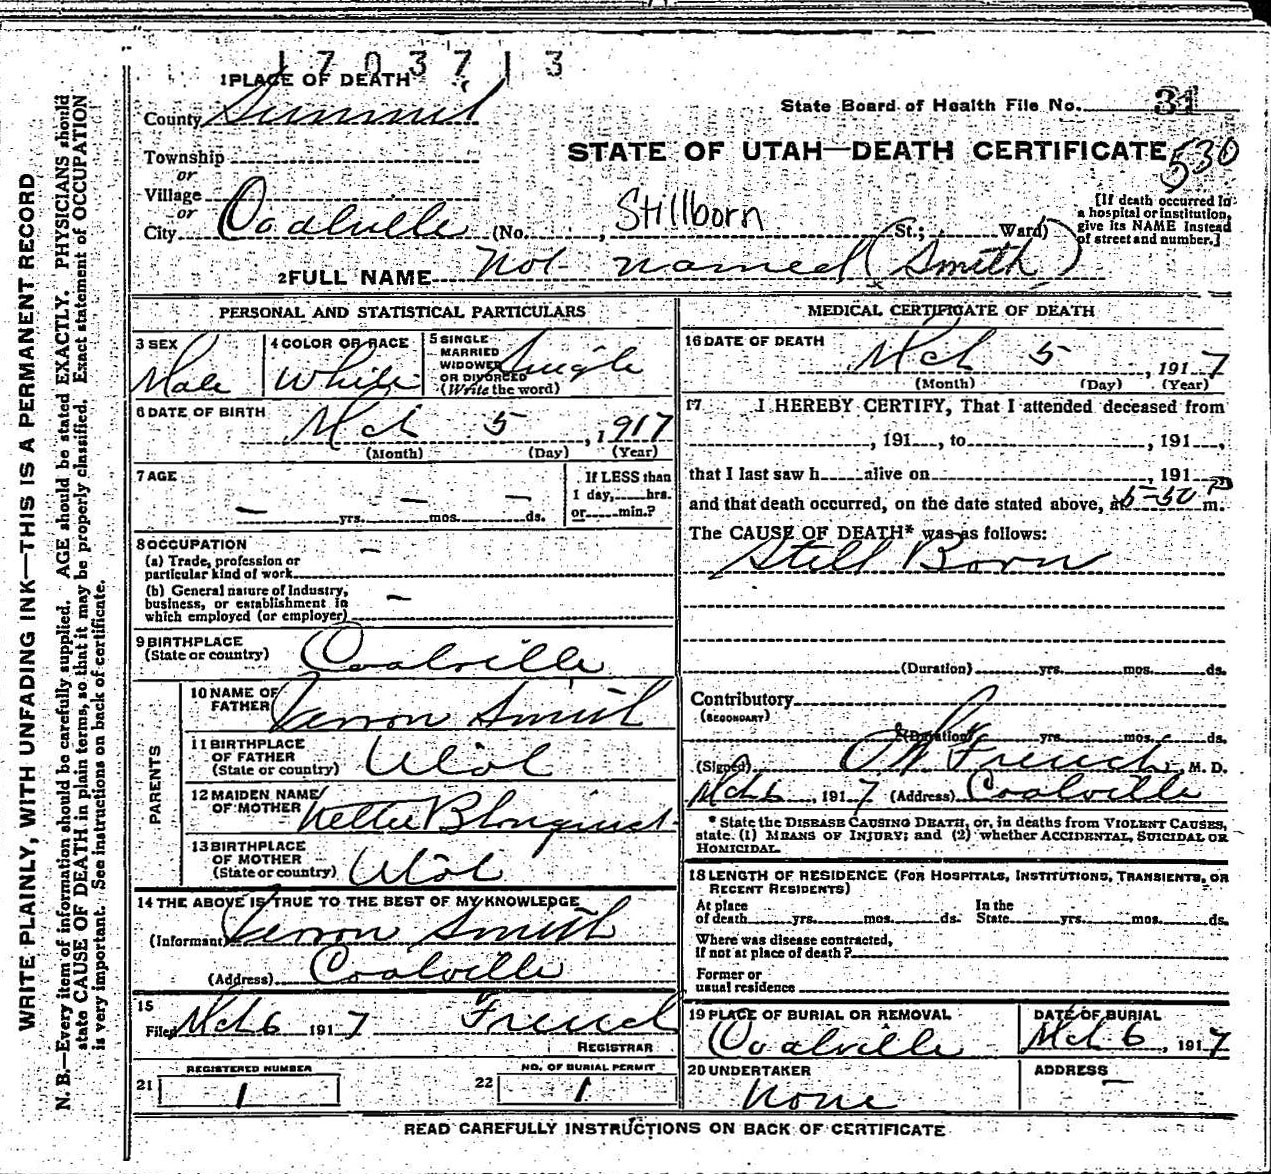 1703713
1 PLACE OF DEATH
County Summit
State Board of Health File No. 31
Township
or
Village
or
City Coalville (No. , Stillborn St.; Ward)
STATE OF UTAH—DEATH CERTIFICATE 530
[If death occurred in
a hospital or institution,
give its NAME instead
of street and number.]
2 FULL NAME Not named (Smith)
WRITE PLAINLY, WITH UNFADING INK—THIS IS A PERMANENT RECORD
N. B.—Every item of information should be carefully supplied. AGE should be stated EXACTLY. PHYSICIANS should
state CAUSE OF DEATH in plain terms, so that it may be properly classified. Exact statement of OCCUPATION
is very important. See instructions on back of certificate.
PERSONAL AND STATISTICAL PARTICULARS
3 SEX
Male
4 COLOR OR RACE
White
5 SINGLE
MARRIED
WIDOWED
OR DIVORCED
(Write the word)
Single
6 DATE OF BIRTH
Mch 5, 1917
(Month) (Day) (Year)
7 AGE
— yrs. — mos. — ds.
If LESS than
1 day, hrs.
or min.?
8 OCCUPATION
(a) Trade, profession or
particular kind of work —
(b) General nature of Industry,
business, or establishment in
which employed (or employer) —
9 BIRTHPLACE
(State or country) Coalville
PARENTS
10 NAME OF
FATHER Vernon Smith
11 BIRTHPLACE
OF FATHER
(State or country) Utah
12 MAIDEN NAME
OF MOTHER Nettie
13 BIRTHPLACE
OF MOTHER
(State or country) Utah
14 THE ABOVE IS TRUE TO THE BEST OF MY KNOWLEDGE
(Informant) Vernon Smith
(Address) Coalville
15
Filed Mch 6 1917 French
REGISTRAR
REGISTERED NUMBER
21 1
NO. OF BURIAL PERMIT
22 1
MEDICAL CERTIFICATE OF DEATH
16 DATE OF DEATH
Mch 5, 1917
(Month) (Day) (Year)
17 I HEREBY CERTIFY, That I attended deceased from
, 191 , to , 191 ,
that I last saw h alive on , 191
and that death occurred, on the date stated above, at 5-50 P m.
The CAUSE OF DEATH* was as follows:
Still Born
(Duration) yrs. mos. ds.
Contributory
(SECONDARY)
(Duration) yrs. mos. ds.
(Signed) French M. D.
Mch 6, 1917 (Address) Coalville
* State the DISEASE CAUSING DEATH, or, in deaths from VIOLENT CAUSES,
state (1) MEANS OF INJURY; and (2) whether ACCIDENTAL, SUICIDAL OR
HOMICIDAL.
18 LENGTH OF RESIDENCE (FOR HOSPITALS, INSTITUTIONS, TRANSIENTS, OR
RECENT RESIDENTS)
At place In the
of death yrs. mos. ds. State yrs. mos. ds.
Where was disease contracted,
if not at place of death?
Former or
usual residence
19 PLACE OF BURIAL OR REMOVAL
Coalville
DATE OF BURIAL
Mch 6, 1917
20 UNDERTAKER
None
ADDRESS
—
READ CAREFULLY INSTRUCTIONS ON BACK OF CERTIFICATE